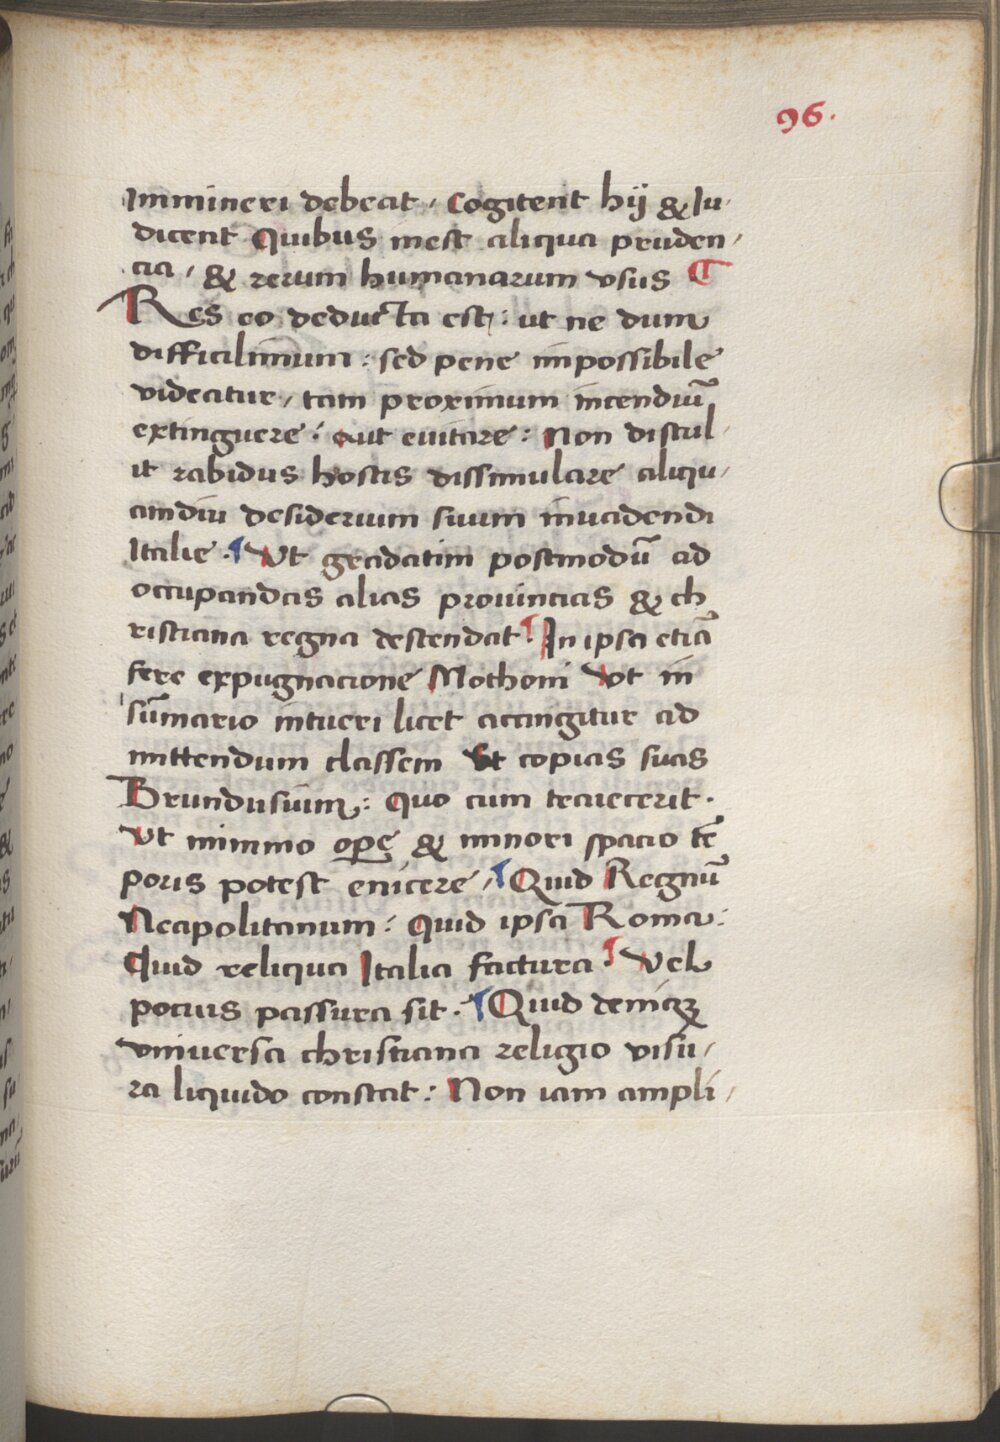 96.
Immineri debeat, Cogitent hij & Iu,
dicent Quibus inest aliqua pruden,
cia, & rerum humanarum vsus ¶
Res eo deducta est: ut ne dum
difficilimum: sed pene impossibile
videatur, tam proximum incendiū
extinguere: aut euitare: Non distul,
it rabidus hostis dissimulare aliqu,
amdiu desiderium suum inuadendi
Italie. ¶ Vt gradatim postmodū ad
occupandas alias prouincias & ch
ristiana regna descendat ¶ In ipsa etiā
fere expugnacione Mothoni Vt in
sūmario intueri licet accingitur ad
mittendum classem Vt copias suas
Brundusium: quo cum teaiecerit.
Vt minimo opę & minori spacio tē
poris potest enicere, ¶ Quid Regnū
Neapolitanum: Quid ipsa Roma:
Quid reliqua Italia factura ¶ Vel
pocius passura sit. ¶ Quid deniqꝫ
vniuersa christiana religio visu,
ra liquido constat: Non iam ampli,